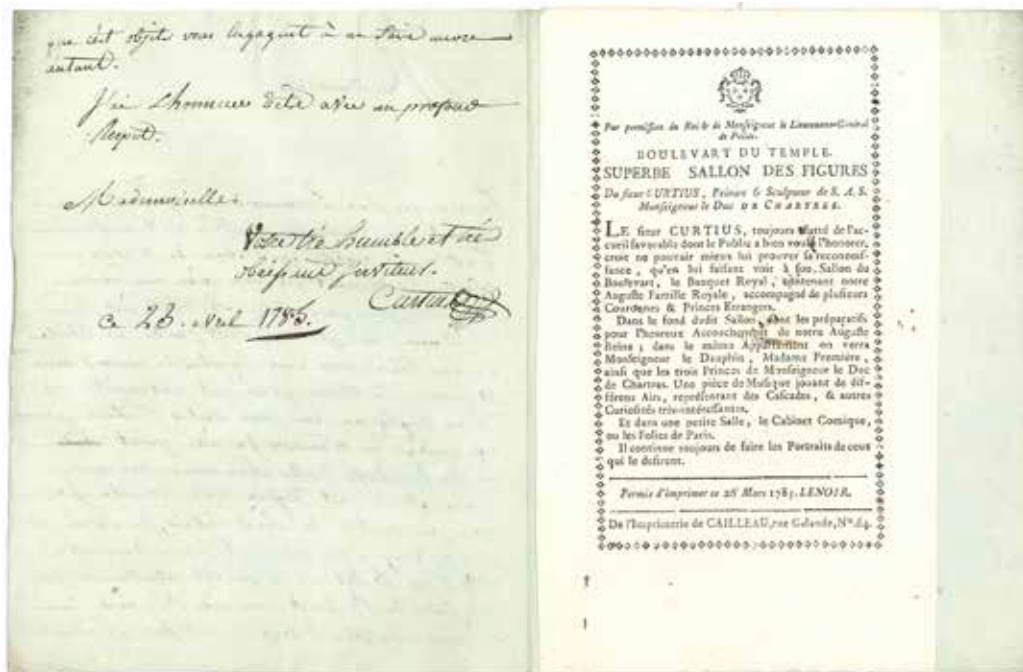 que cest objets vous engagent à en faire encore
autant.
J'ai L'honneur d'etre avec un profond
Respect.
Mademoiselle.
Votre tres humble et tres
obeissant serviteur.
Curtius
Ce 23. avril 1785.
Par permission du Roi & de Monseigneur le Lieutenant-Général
de Police.
BOULEVART DU TEMPLE.
SUPERBE SALLON DES FIGURES
Du sieur CURTIUS, Peintre & Sculpteur de S. A. S.
Monseigneur le Duc DE CHARTRES.
LE sieur CURTIUS, toujours flatté de l'ac-
cueil favorable dont le Public a bien voulu l'honorer,
croit ne pouvoir mieux lui prouver sa reconnois-
sance, qu'en lui faisant voir à son Sallon du
Boulevart, le Banquet Royal, contenant notre
Auguste Famille Royale, accompagné de plusieurs
Couronnes & Princes Etrangers.
Dans le fond dudit Sallon, sont les préparatifs
pour l'heureux Accouchement de notre Auguste
Reine; dans le même Appartement on verra
Monseigneur le Dauphin, Madame Première,
ainsi que les trois Princes de Monseigneur le Duc
de Chartres. Une pièce de Musique jouant de dif-
férens Airs, représentant des Cascades, & autres
Curiosités très-intéressantes.
Et dans une petite Salle, le Cabinet Comique,
ou les Folies de Paris.
Il continue toujours de faire les Portraits de ceux
qui le desirent.
Permis d'imprimer ce 26 Mars 1785. LENOIR.
De l'Imprimerie de CAILLEAU, rue Galande, Nº. 64.